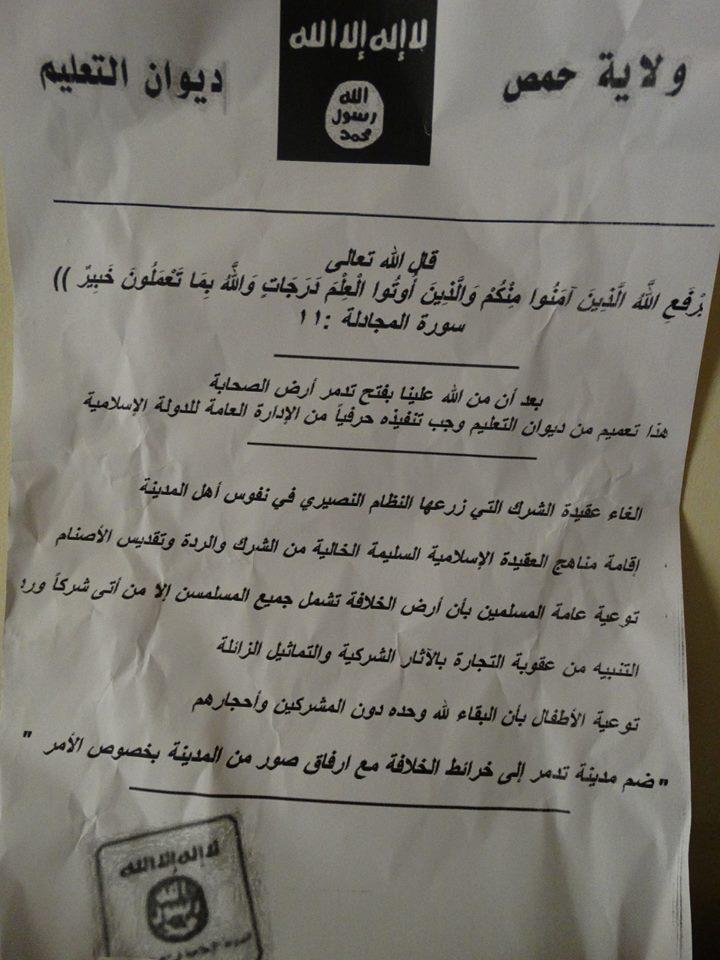 ولاية حمص
لا إله إلا الله
الله
رسول
محمد
ديوان التعليم
قال الله تعالى
يرْفَعِ اللَّهُ الَّذِينَ آمَنُوا مِنْكُمْ وَالَّذِينَ أُوتُوا الْعِلْمَ دَرَجَاتٍ وَاللَّهُ بِمَا تَعْمَلُونَ خَبِيرٌ ))
سورة المجادلة :١١
بعد أن من الله علينا بفتح تدمر أرض الصحابة
هذا تعميم من ديوان التعليم وجب تنفيذه حرفياً من الإدارة العامة للدولة الإسلامية
الغاء عقيدة الشرك التي زرعها النظام النصيري في نفوس أهل المدينة
إقامة مناهج العقيدة الإسلامية السليمة الخالية من الشرك والردة وتقديس الأصنام
توعية عامة المسلمين بأن أرض الخلافة تشمل جميع المسلمسن إلا من أتى شركاً
التنبيه من عقوبة التجارة بالآثار الشركية والتماثيل الزائلة
توعية الأطفال بأن البقاء لله وحده دون المشركين وأحجارهم
" ضم مدينة تدمر إلى خرائط الخلافة مع ارفاق صور من المدينة بخصوص الأمر "
لا إله إلا الله